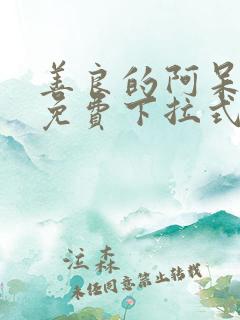 善良的阿呆
免費下拉式
泣森
未经同意禁止转载